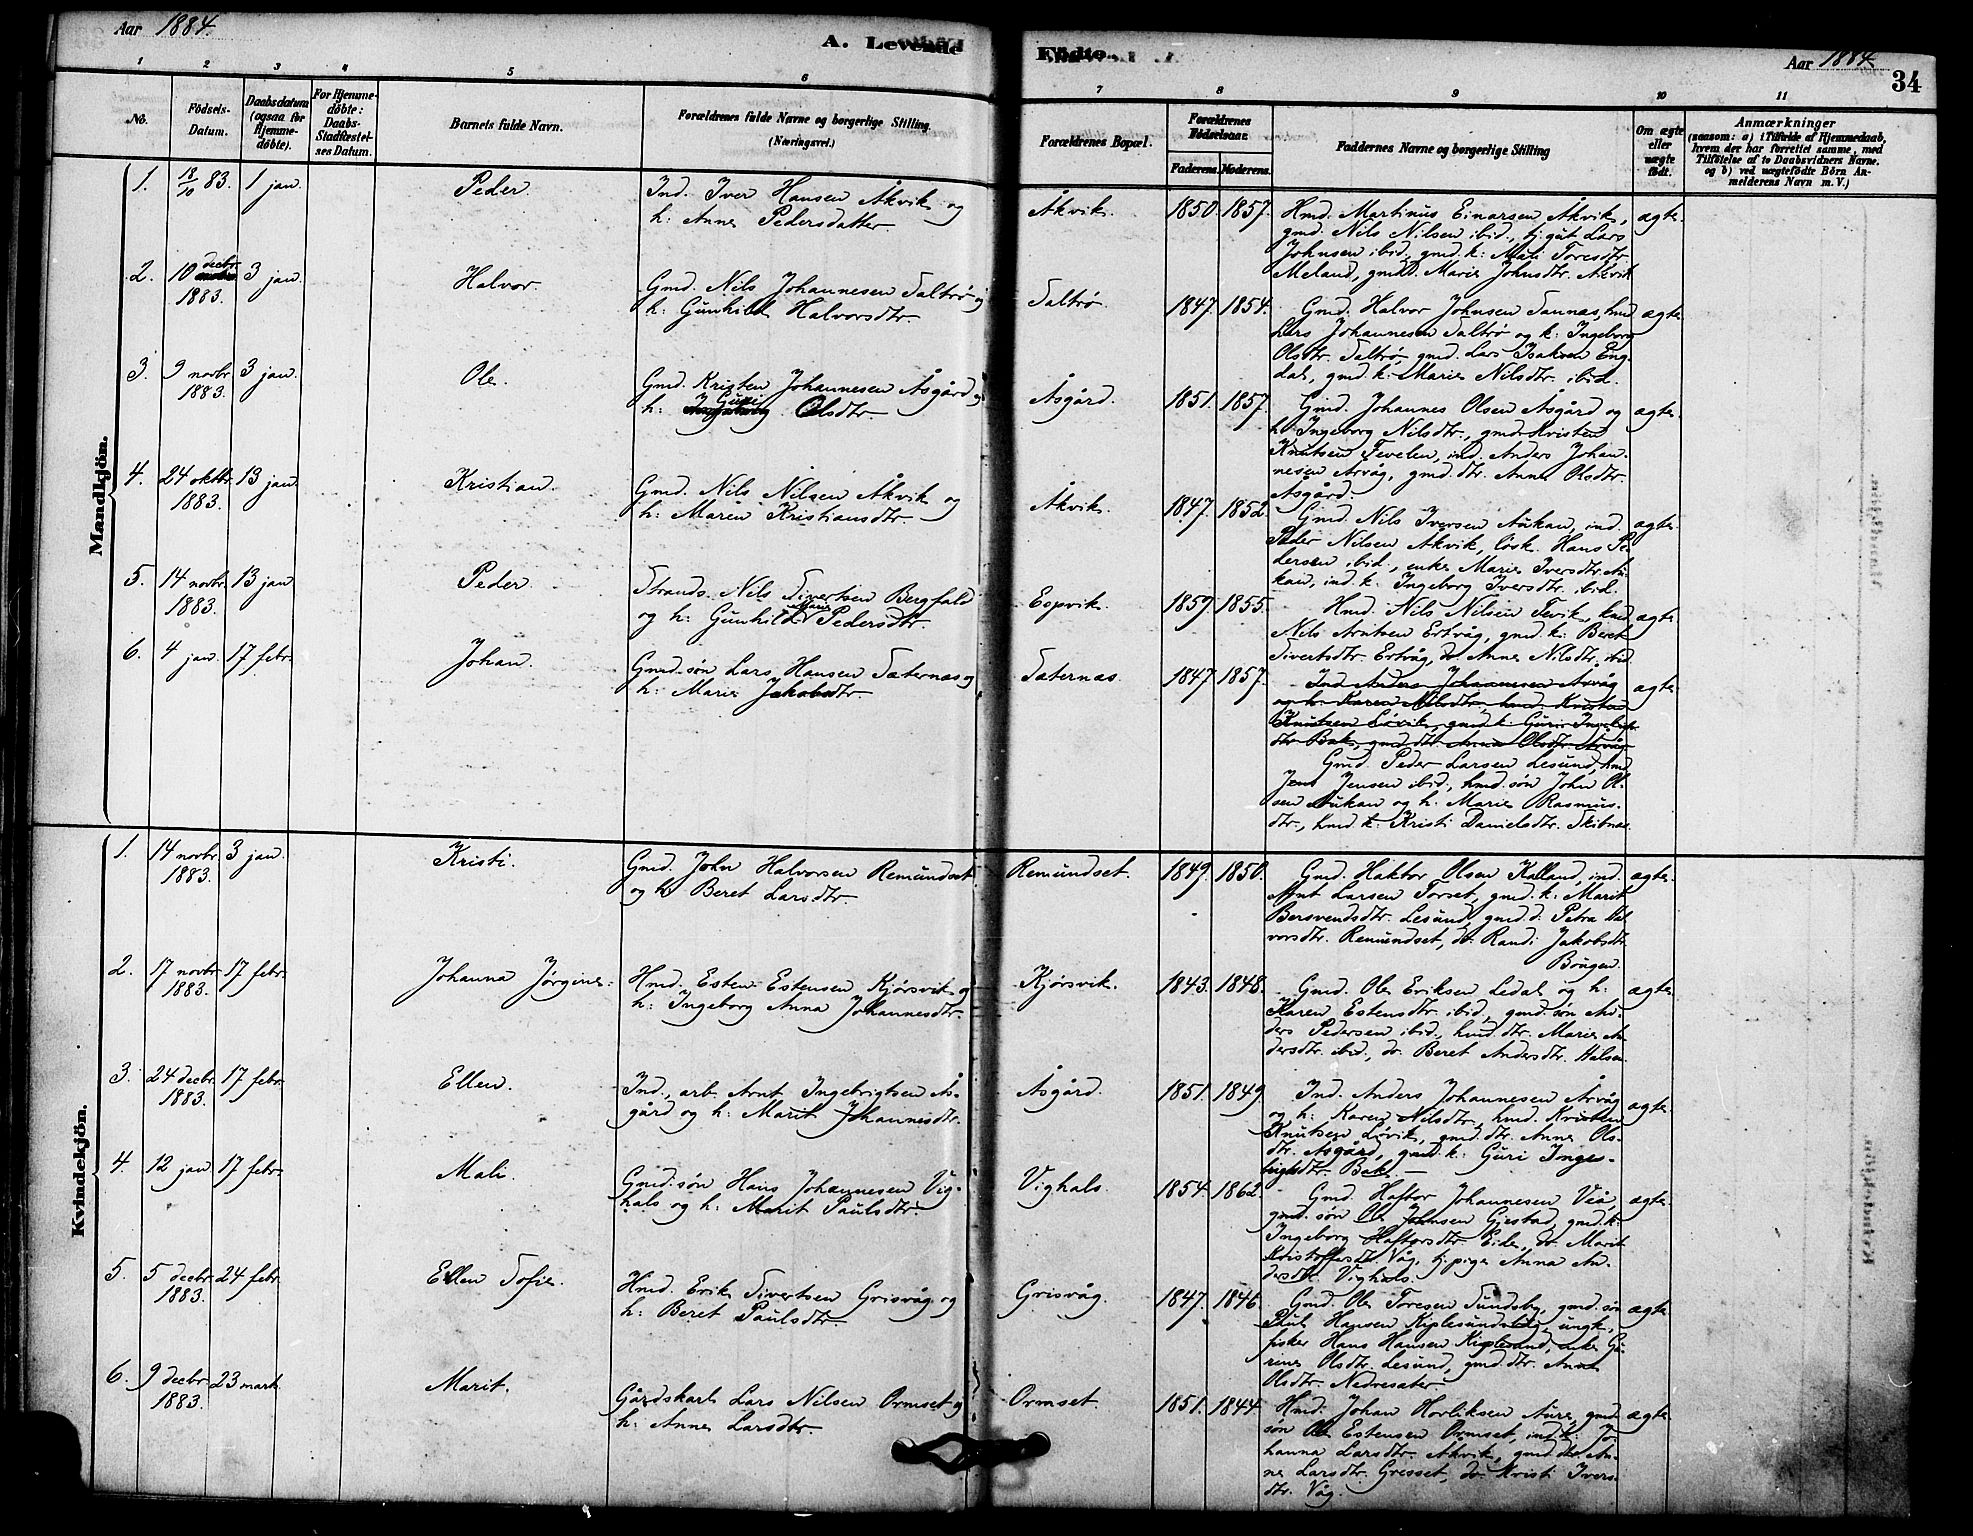 Aar 1884.
A. Levende
Födte.
Aar 1884.
34
1 2 3 4 5 6
7 8 9 10 11
No.
Födsels-Datum.
Daabsdatum (ogsaa for Hjemme-döbte).
For Hjemme-döbte: Daabs-Stadfæstel-ses Datum.
Barnets fulde Navn.
Forældrenes fulde Navne og borgerlige Stilling.
(Næringsvei.)
Forældrenes Bopæl.
Forældrenes Födselsaar.
Faderens. Moderens.
Faddernes Navne og borgerlige Stilling
Om ægte eller uægte födt.
Anmærkninger
(saasom: a) i Tilfælde af Hjemmedaab, hvem der har forrettet samme, med Tilföielse af to Daabsvidners Navne. og b) ved uægtefödte Börn An-melderens Navn m. V.)
Mandkjön.
1. 18/10 83. 1 jan. Peder. Ind. Iver Hansen Åkvik og
h: Anne Pedersdatter.
Åkvik. 1850. 1857. Hmd. Martinus Einarsen Åkvik, ægte.
gmd. Nils Nilsen ibid., tj.gut Lars
Johnsen ibid, gmd. k: Mali Toresdtr.
Meland, gmd. Marie Johnsdtr. Åkvik
2. 10 decbr 1883. 3 jan. Halvor. Gmd. Nils Johannesen Saltrø og
h: Gunhild Halvorsdtr.
Saltrø. 1847. 1854. Gmd. Halvor Johnsen Saunæs, hmd ægte.
Lars Johannesen Saltrø og k: Ingeborg
Olsdtr. Saltrø, gmd. Lars Isaksen Eng-
dal, gmd. k: Marie Nilsdtr. ibid.
3. 9 novbr 1883. 3 jan. Ole. Gmd. Kristen Johannesen Åsgård og
h: Guri Olsdtr.
Åsgård. 1851. 1857. Gmd. Johannes Olsen Åsgård og ægte.
h: Ingeborg Nilsdtr., gmd. Kristen
Knutsen Tevelen, ind. Anders Johan-
nesen Årvåg, gmd. dtr. Anne Olsdtr.
Åsgård.
4. 24 oktbr. 1883. 13 jan. Kristian. Gmd. Nils Nilsen Åkvik og
h: Maren Kristiansdtr.
Åkvik. 1847. 1852. Gmd. Nils Iversen Aukan, ind. ægte.
Peder Nilsen Åkvik, løsk. Hans Pe-
dersen ibid., enke Marie Iversdtr. Au-
kan, ind. k: Ingeborg Iversdtr. ibid.
5. 14 novbr. 1883. 13 jan Peder. Strands. Nils Sivertsen Bergfald
og h: Gunhild Marie Pedersdtr.
Espvik. 1857. 1855. Hmd. Nils Nilsen Tevik, ægte.
Nils Arntsen Ertvåg, gmd. k: Beret
Sivertsdtr. Ertvåg, do. Anne Nilsdtr. ibid.
6. 4 jan. 17 febr. Johan. Gmd. søn Lars Hansen Sæternæs og
h: Marie Jakobsdtr
Sæternæs. 1847 1857. Ind. Anders Johannesen Årvåg ægte.
og h: Karen Nilsdtr., hmd. Kristen
Knutsen Løvik, gmd. k: Guri Ingebrigts
dtr. Bak, gmd. dtr. Anne Olsdtr. Årvåg
Gmd. Peder Larsen Lesund, hmd
Jens Jensen ibid., hmd. søn John Ol-
sen Aukan og h: Marie Rasmus-
dtr., hmd. k: Kristi Danielsdtr. Skibnæs.
Kvindekjön.
1. 14 novbr 1883. 3 jan. Kristi. Gmd. John Halvorsen Remundset
og h: Beret Larsdtr
Remundset. 1849. 1850. Gmd. Haktor Olsen Kalland, ind. ægte.
Arnt Larsen Torset, gmd. k: Marit
Bersvendsdtr. Lesund, gmd. d: Petra Hal-
vorsdtr. Remundset, do. Randi Jakobsdtr
Bøugen.
2. 17 novbr. 1883. 17 febr. Johanna Jørgine. Hmd. Esten Estensen Kjørsvik og
h: Ingeborg Anna Johannesdtr.
Kjørsvik. 1843. 1848. Gmd. Ole Eriksen Ledal og h: ægte.
Karen Estensdtr ibid, gmd. søn An-
ders Pedersen ibid., hmd. dtr. Marie An-
dersdtr. ibid., do. Beret Andersdtr. Halsen.
3. 24 decbr. 1883. 17 febr. Ellen. Ind., arb. Arnt Ingebrigtsen Ås-
gård og h: Marit Johannesdtr.
Åsgård. 1851. 1849. Ind. Anders Johannesen Årvåg ægte.
og h: Karen Nilsdtr., hmd. Kristen
Knutsen Løvik, gmd. dtr. Anne Ols-
dtr. Åsgård, gmd. k: Guri Inge-
brigtsdtr. Bak. —
4. 12 jan. 17 febr. Mali. Gmd. søn Hans Johannesen Vig-
hals og h: Marit Paulsdtr.
Vighals. 1854. 1862. Gmd. Haftor Johannesen Veiå, ægte.
gmd. søn Ole Johnsen Gjestad, gmd. k:
Ingeborg Haftorsdtr. Eide, do. Marit
Kristoffersdtr. Våg, tj.pige Anna An-
dersdtr. Vighals.
5. 5 decbr. 1883. 24 febr. Ellen Sofie. Hmd. Erik Sivertsen Grisvåg og
h: Beret Paulsdtr.
Grisvåg. 1847. 1846. Gmd. Ole Toresen Sundsby, gmd. søn ægte.
Paul Hansen Kiplesundslid, ungk.,
fisker Hans Hansen Kiplesund, enke Gu-
rine Olsdtr. Lesund, gmd. dtr. Anne
Olsdtr. Nedresæter.
6. 9 decbr. 1883. 23 mark. Marit. Gårdskarl Lars Nilsen Ormset og
h: Anne Larsdtr.
Ormset. 1851. 1844. Hmd. Johan Hovliksen Aure, gmd. ægte.
søn Ole Estensen Ormset, ind. k: Jo-
hanna Larsdtr. Åkvik, gmd. dtr. An-
ne Larsdtr. Gresset, do. Kristi Ivers-
dtr. Våg.